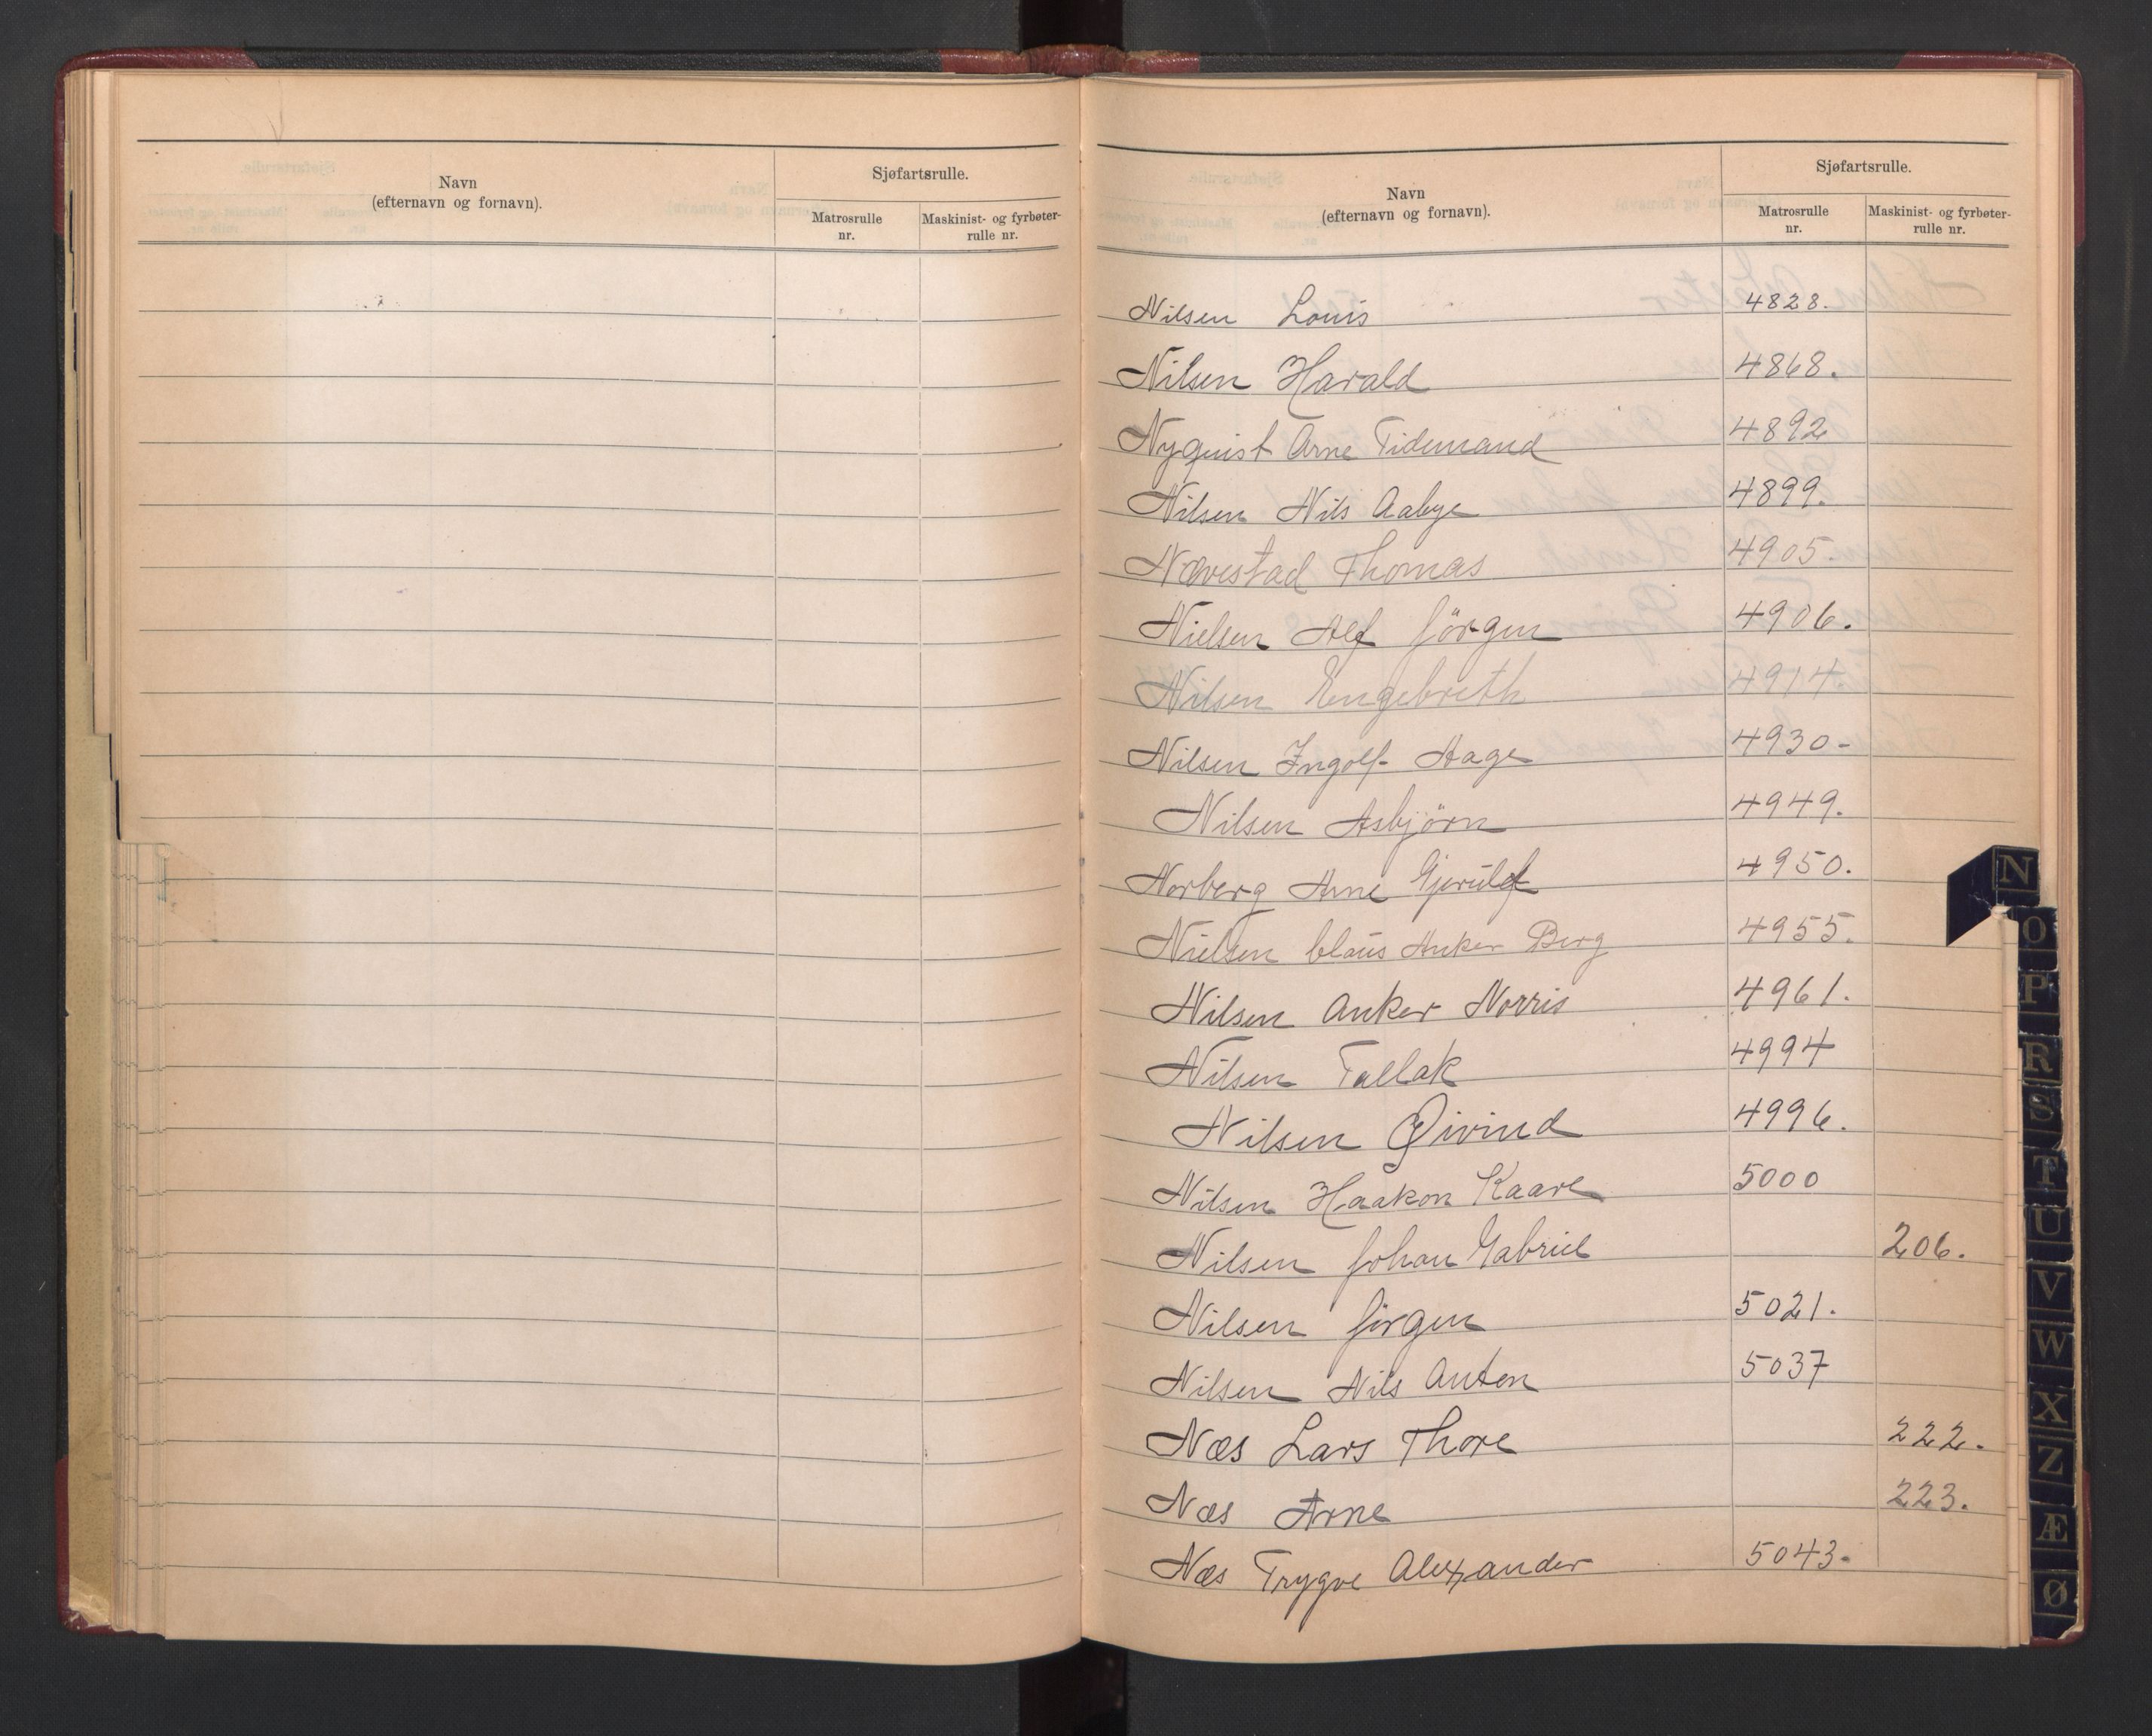 Navn
(efternavn og fornavn).
Sjøfartsrulle.
Matrosrulle
nr.
Maskinist- og fyrbøter-
rulle nr.
Navn
(efternavn og fornavn).
Sjøfartsrulle.
Matrosrulle
nr.
Maskinist- og fyrbøter-
rulle nr.
Nilsen Louis 4828.
Nilsen Harald 4868.
Nyquist Arne Tidemand 4892
Nilsen Nils Aabye 4899.
Nævestad Thomas 4905.
Nielsen Alf Jörgen 4906.
Nilsen Engebreth 4914.
Nilsen Ingolf Hage 4930-
Nilsen Asbjörn 4949.
Norberg Arne Gjerulf 4950.
Nielsen Claus Anker Berg 4955.
Nilsen Anker Norris 4961.
Nilsen Tallak 4994
Nilsen Øivind 4996.
Nilsen Haakon Kaare 5000
Nilsen Johan Gabriel 206.
Nilsen Jörgen 5021.
Nilsen Nils Anton 5037
Næs Lars Thore 222.
Næs Arne 223.
Næs Trygve Alexander 5043.
N
O
P
R
S
T
U
V
W
X
Z
Æ
Ø